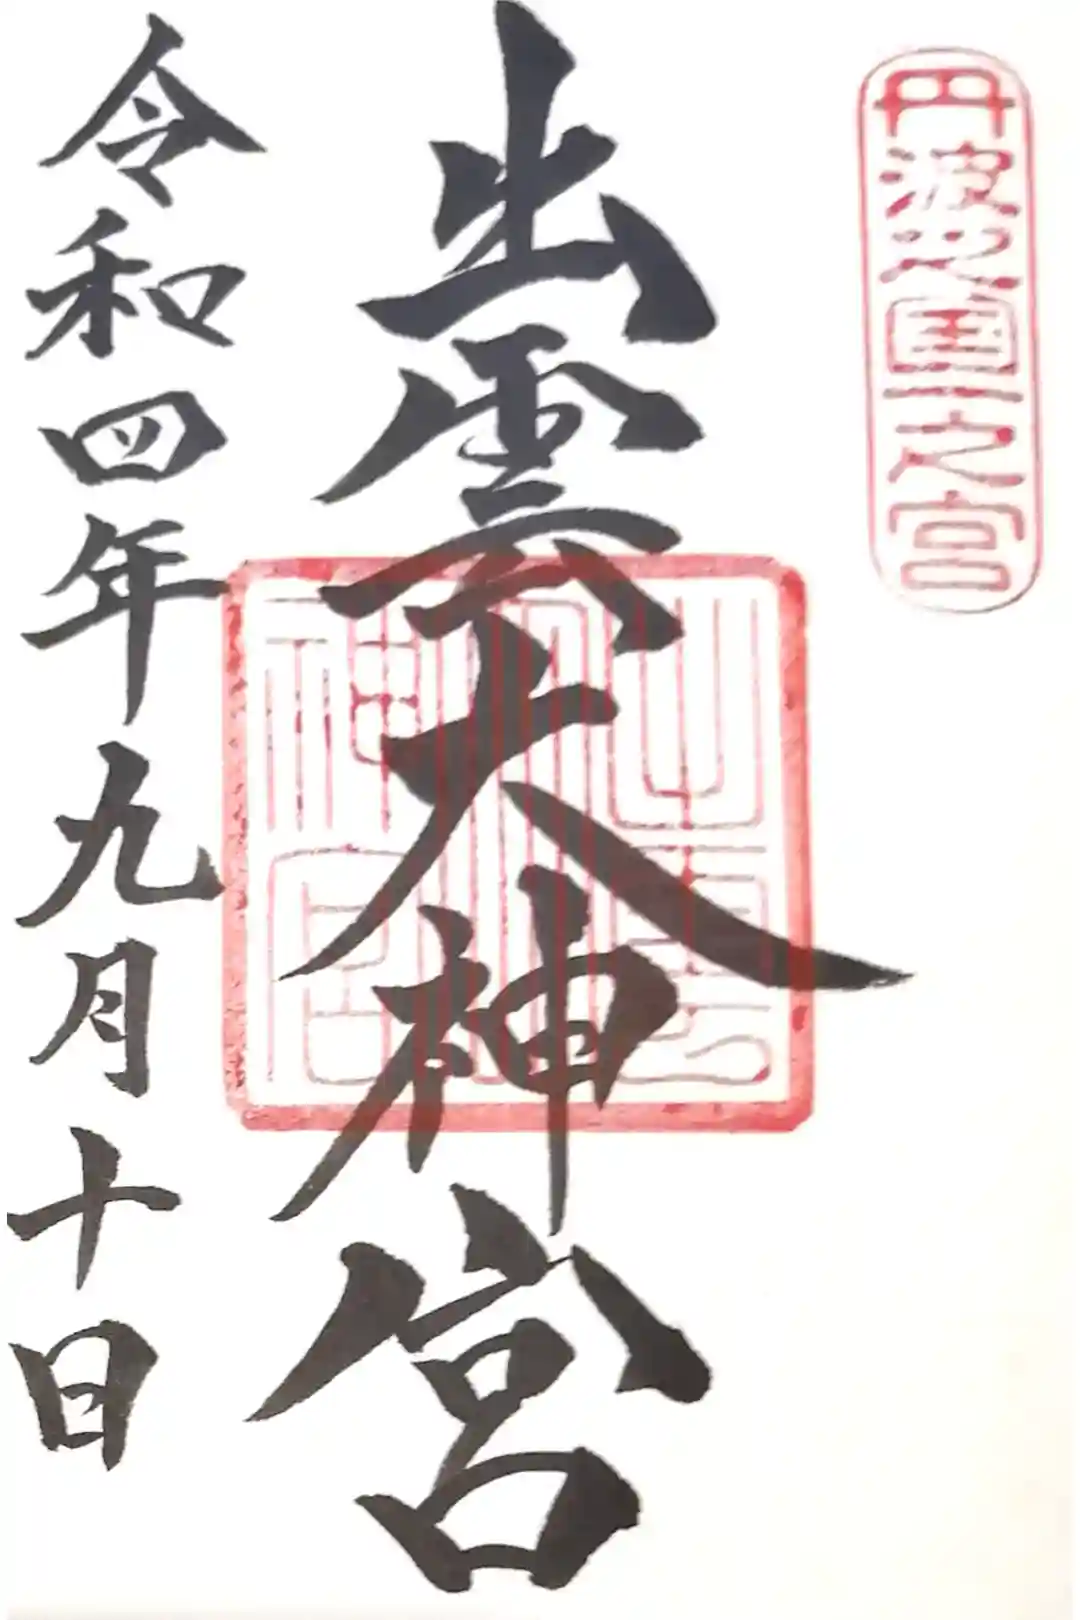 丹波之国一之宮
出雲大神宮
出雲大神宮
令和四年九月十日